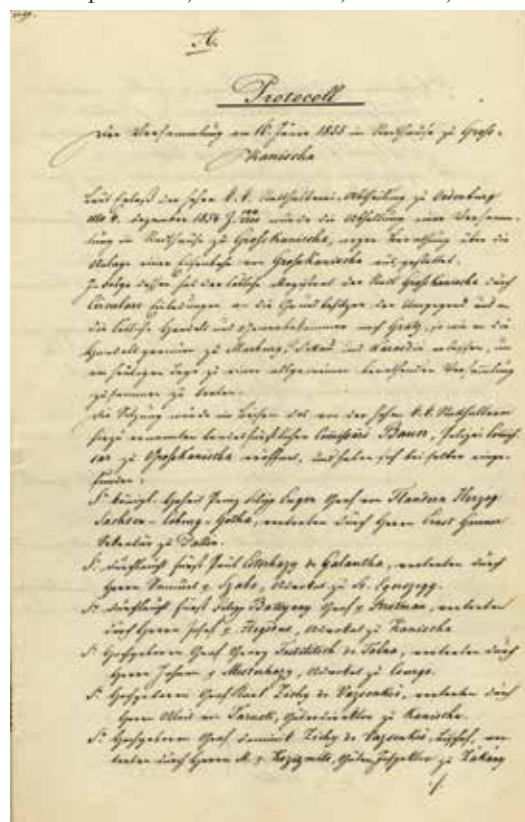 A.
Protocoll
der Versammlung am 16. Jänner 1855 im Stadthause zu Groß-
Kanischa
Laut Erlaß der hohen k. k. Statthalterei-Abtheilung zu Oedenburg
dto 4. Dezember 1854 Z. wurde die Abhaltung einer Versamm-
lung im Stadthause zu Großkanischa, wegen Berathung über die
Anlage einer Eisenbahn von Großkanischa aus gestattet.
In Folge dessen hat der löbliche Magistrat der Stadt Großkanischa durch
Circulare Einladungen an die Grundbesitzer der Umgegend und an
die löbliche Handels und Gewerbekammer nach Gratz, so wie an die
Handelsgremien zu Marburg, Pettau und Warasdin erlassen, um
am heutigen Tage zu einer allgemeinen berathenden Versammlung
zusammen zu treten.
Die Sitzung wurde im Beisein des von der hohen k. k. Statthalterei
hiezu ernannten landesfürstlichen Commissärs Bauer, Polizei Commis-
sär zu Großkanischa eröffnet, und haben sich bei selber einge-
funden:
Sr königl. Hoheit Prinz August Graf von Flandern Herzog
Sachsen-Coburg-Gotha, vertreten durch Herrn Ernst
Sekretär zu
Sr. Durchlaucht Fürst Paul Esterhazy de Galantha, vertreten durch
Herrn Samuel v. Szabo, Advokat zu A.
Sr Durchlaucht Fürst Filipp Batthyany Graf v. vertreten
durch Herrn Josef v. Advokat zu Kanischa
Sr Hochgeboren Graf Georg Festetitsch de Tolna, vertreten durch
Herrn Johann v. Advokat zu Csurgo.
Sr Hochgeboren Graf Karl Zichy de Vasonkeö, vertreten durch
Herrn Alois von Güterdirektor zu Kanischa.
Sr. Hochgeboren Graf Dominik Zichy de Vasonkeö, Bischof, ver-
treten durch Herrn A. v. zu Zakany